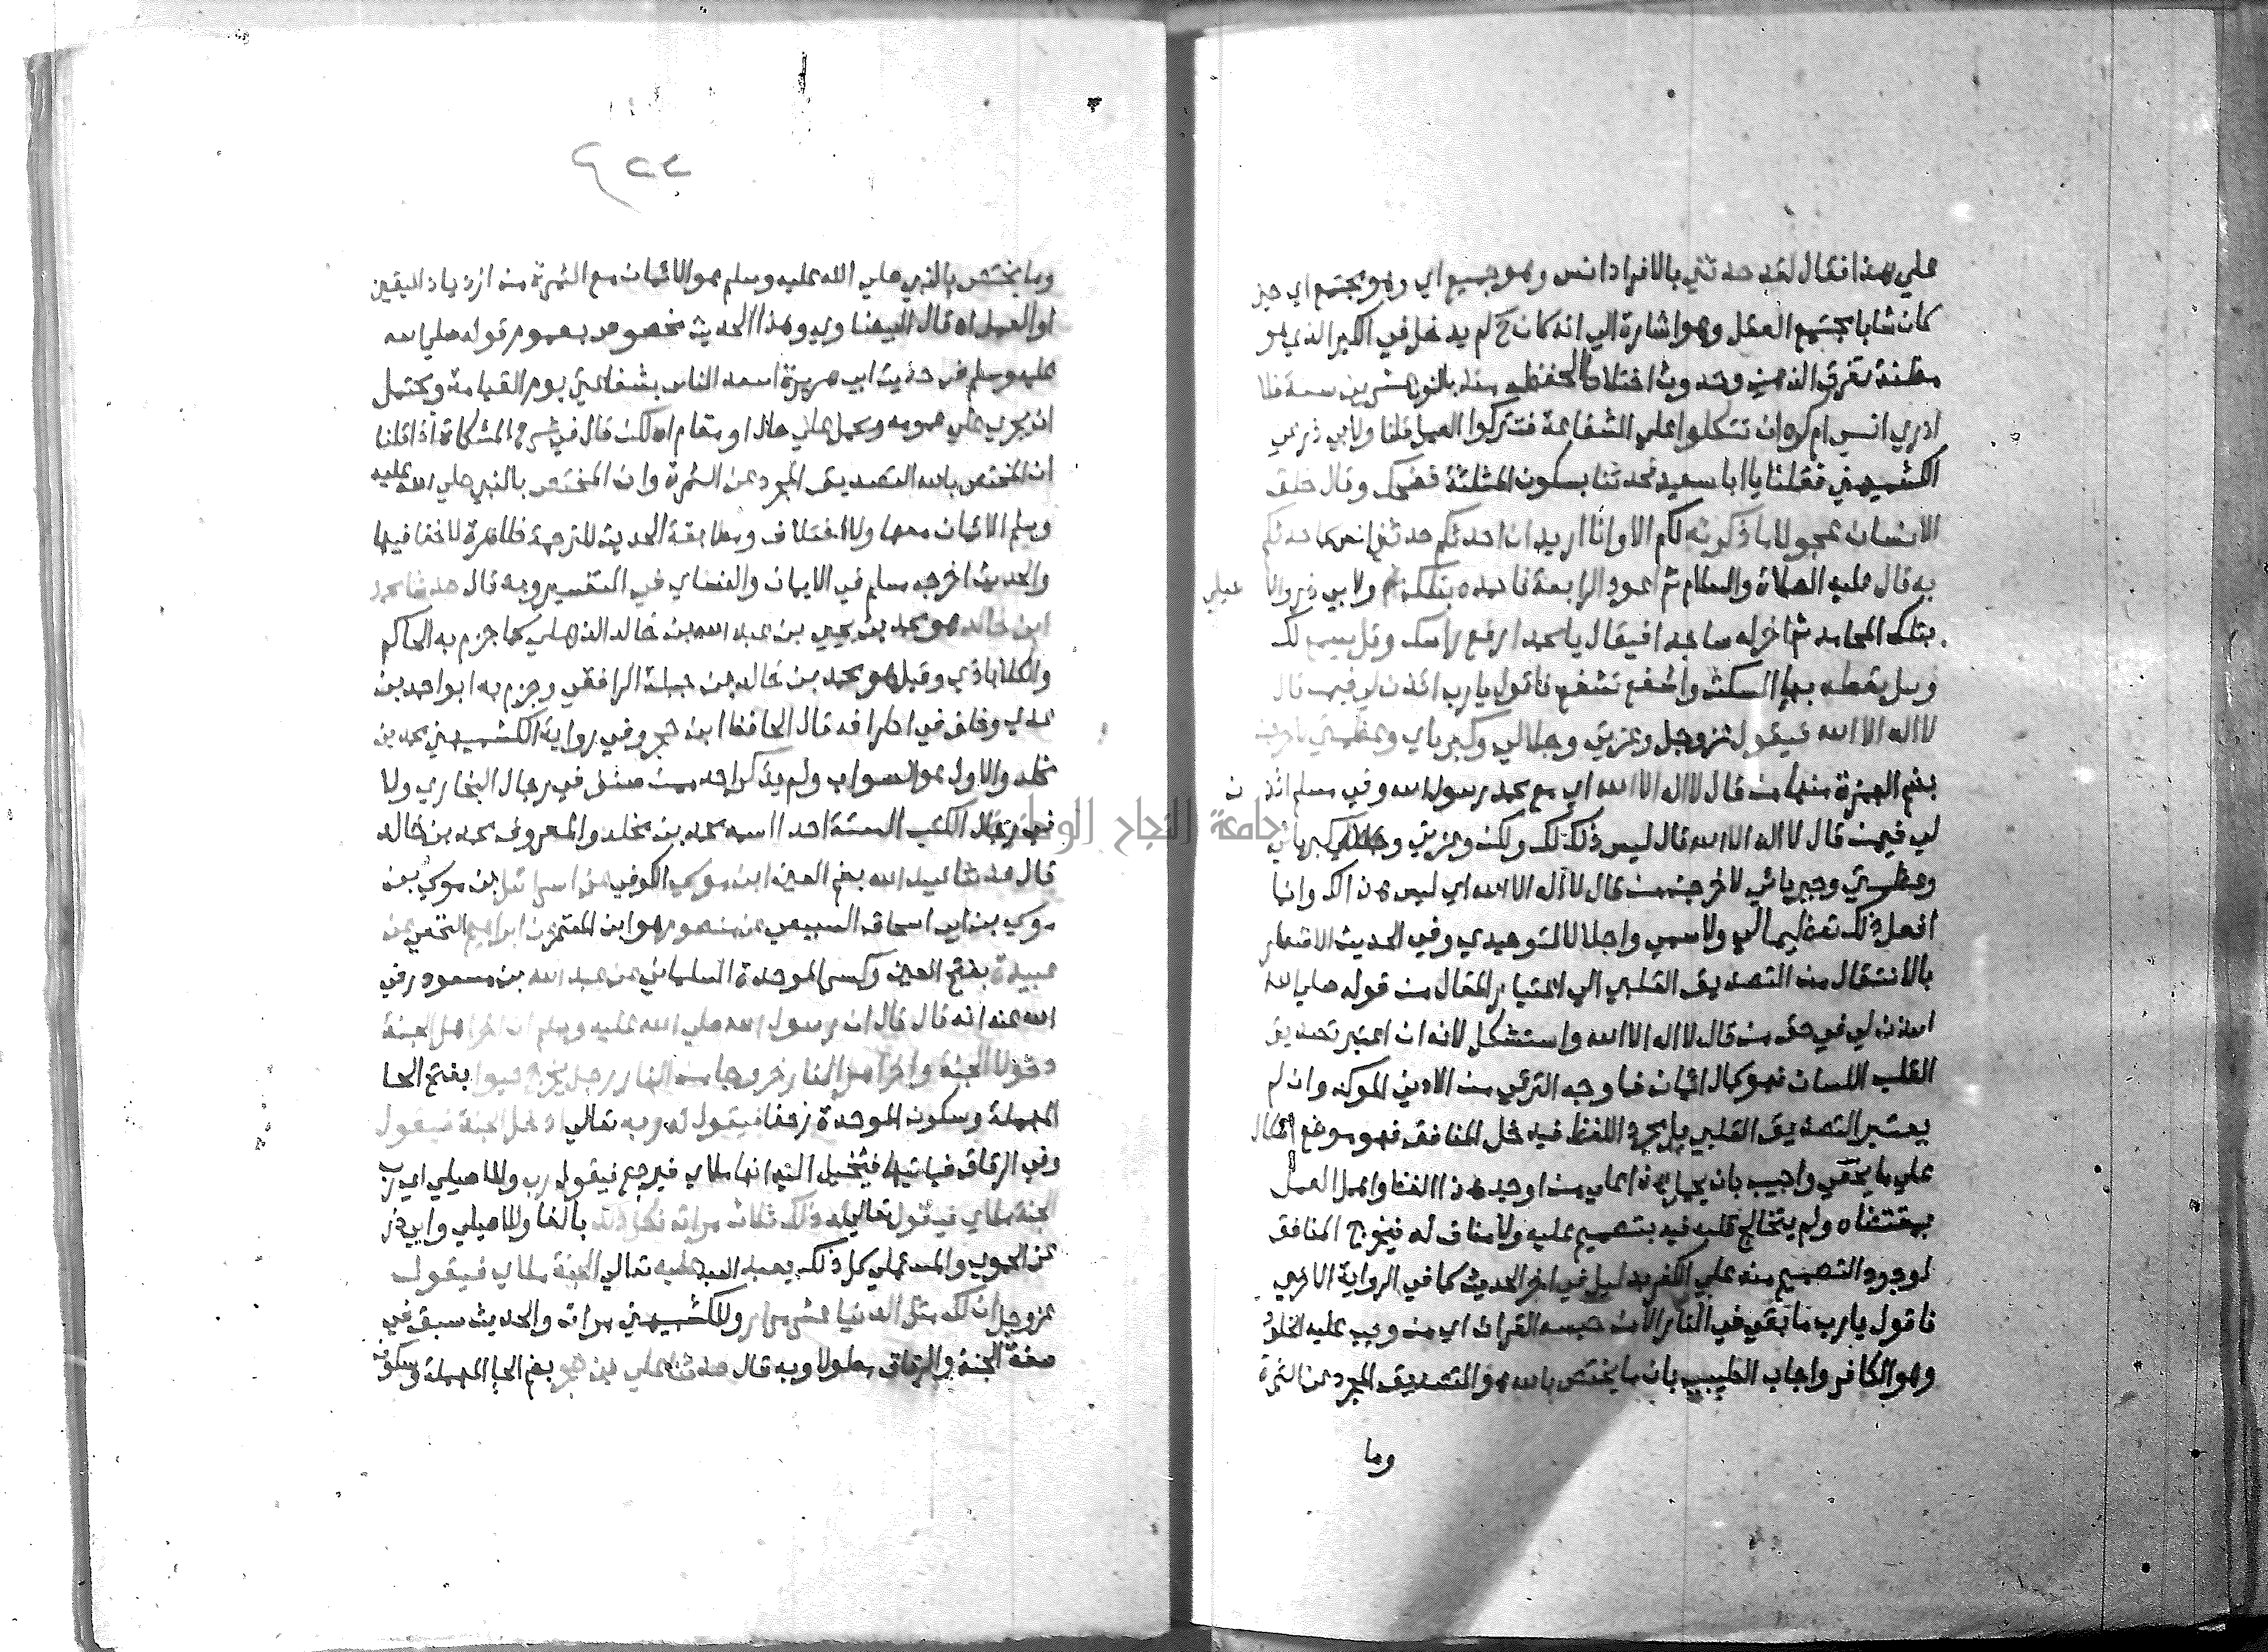 علي هذا فقال لقد حدثني بالافراد انس وهو جميع اي وهو مجتمع اي حين
كان شابا مجتمع العقل وهو اشارة الي انه كان ح لم يدخل في الكبر الذي هو
مظنة تفرق الذهن وحدوث اختلاط الحفظ منذ بالنون عشرين سنة فلا
ادري انسي ام كره ان تتكلوا علي الشفاعة فتتركوا العمل قلنا ولابي ذر عن
الكشميهني فقلنا يا ابا سعيد فحدثنا بسكون المثلثة فضحك وقال خلق
الانسان عجولا ما ذكرته لكم الا وانا اريد ان احدثكم حدثني انس كما حدثكم
به قال عليه الصلاة والسلام ثم اعود الرابعة فاحمده بتلك ثم ولابي ذر والاصيلي
بتلك المحامد ثم اخر له ساجدا فيقال يا محمد ارفع راسك وقل يسمع لك
وسل تعطه بهاء السكت واشفع تشفع فاقول يا رب ائذن لي فيمن قال
لا اله الا الله فيقول عز وجل وعزتي وجلالي وكبرياي وعظمتي لاخرجن
بضم الهمزة منها من قال لا اله الا الله اي مع محمد رسول الله وفي مسلم ائذن
لي فيمن قال لا اله الا الله قال ليس ذلك لك ولكن وعزتي وجلالي وكبريائي
وعظمتي وجبريائي لاخرجن من قال لا اله الا الله اي ليس هذا لك وانما
افعل ذلك تعظيما لي ولاسمي واجلالا لتوحيدي وفي الحديث الاشعار
بالانتقال من التصديق القلبي الي اعتبار المقال من قوله صلي الله
ائذن لي في حق من قال لا اله الا الله واستشكل لانه ان اعتبر تصديق
القلب اللسان فهو كمال ائمان فما وجه الترقي من الادني الموكد وان لم
يعتبر التصديق القلبي بل مجرد اللفظ فيدخل المنافق فهو موضع اشكال
علي ما يخفي واجيب بان يحمل هذا علي من اوجد هذا اللفظ واهمل العمل
بمقتضاه ولم يتخالج قلبه فيه بتصميم عليه ولا مناف له فيخرج المنافق
لوجود التصميم منه علي الكفر بدليل في اخر الحديث كما في الرواية الاخري
فاقول يا رب ما بقي في النار الا من حبسه القران اي من وجب عليه الخلود
وهو الكافر واجاب الطيبي بان ما يختص بالله هو التصديق المجرد عن الثمرة
وما
٤٢٢
وما يختص بالنبي صلي الله عليه وسلم هو الائمان مع الثمرة من ازدياد اليقين
او العمل اه قال البيضاوي وهذا الحديث مخصوص بعموم قوله صلي الله
عليه وسلم في حديث ابي هريرة اسعد الناس بشفاعتي يوم القيامة ويحتمل
ان يجري علي عمومه ويحمل علي حال او مقام اه لكن قال في شرح المشكاة اذا قلنا
ان المختص بالله التصديق المجرد عن الثمرة وان المختص بالنبي صلي الله عليه
وسلم الائمان معها ولا اختلاف ومطابقة الحديث للترجمة ظاهرة لا خفا فيها
والحديث اخرجه مسلم في الايمان والنساي في التفسير وبه قال حدثنا محمد
ابن خالد هو محمد بن يحيي بن عبد الله بن خالد الذهلي كما جزم به الحاكم
والكلاباذي وقيل هو محمد بن خالد بن جبلة الرافقي وجزم به ابو احمد بن
عدي وخلف في اطرافه قال الحافظ ابن حجر وفي رواية الكشميهني محمد بن
مخلد والاول هو الصواب ولم يذكر احد ممن صنف في رجال البخاري ولا
في رجال الكتب الستة احدا اسمه محمد بن مخلد والمعروف محمد بن خالد
قال حدثنا عبيد الله بضم العين ابن موسي الكوفي عن اسرائيل بن موسي بن
موسي بن ابي اسحاق السبيعي عن منصور هو ابن المعتمر عن ابراهيم النخعي عن
عبيدة بفتح العين وكسر الموحدة السلماني عن عبد الله بن مسعود رضي
الله عنه انه قال قال ان رسول الله صلي الله عليه وسلم ان اخر اهل الجنة
دخولا الجنة واخر اهل النار خروجا من النار رجل يخرج حبوا بفتح الحا
المهملة وسكون الموحدة زحفا فيقول له ربه تعالي ادخل الجنة فيقول
وفي الرقاق فياتيها فيخيل اليه انها ملاي فيرجع فيقول رب وللاصيلي اي رب
الجنة ملاي فيقول تعالي له ذلك ثلاث مرات فكل ذلك بالفا وللاصيلي وابي ذر
عن الحموي والمستملي كل ذلك يعيد العبد عليه تعالي الجنة ملاي فيقول
عز وجل ان لك مثل الدنيا عشر مرار وللكشميهني مرات والحديث سبق في
صفة الجنة والرقاق مطولا وبه قال حدثنا علي بن حجر بضم الحا المهملة وسكون